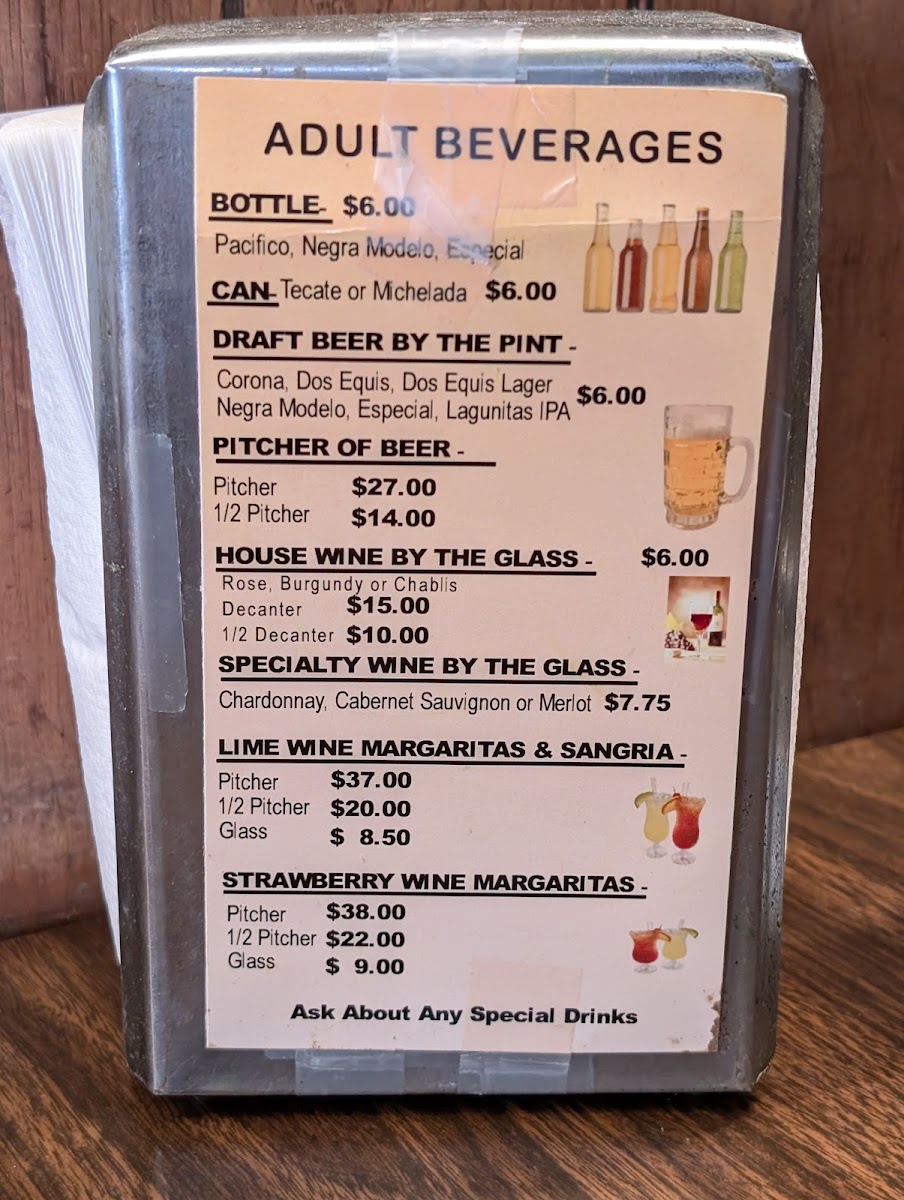 ADULT BEVERAGES
BOTTLE- $6.00
Pacifico, Negra Modelo, Especial
CAN- Tecate or Michelada $6.00
DRAFT BEER BY THE PINT -
Corona, Dos Equis, Dos Equis Lager
$6.00
Negra Modelo, Especial, Lagunitas IPA
PITCHER OF BEER -
Pitcher $27.00
1/2 Pitcher $14.00
HOUSE WINE BY THE GLASS - $6.00
Rose, Burgundy or Chablis
Decanter $15.00
1/2 Decanter $10.00
SPECIALTY WINE BY THE GLASS -
Chardonnay, Cabernet Sauvignon or Merlot $7.75
LIME WINE MARGARITAS & SANGRIA -
Pitcher $37.00
1/2 Pitcher $20.00
Glass $ 8.50
STRAWBERRY WINE MARGARITAS -
Pitcher $38.00
1/2 Pitcher $22.00
Glass $ 9.00
Ask About Any Special Drinks